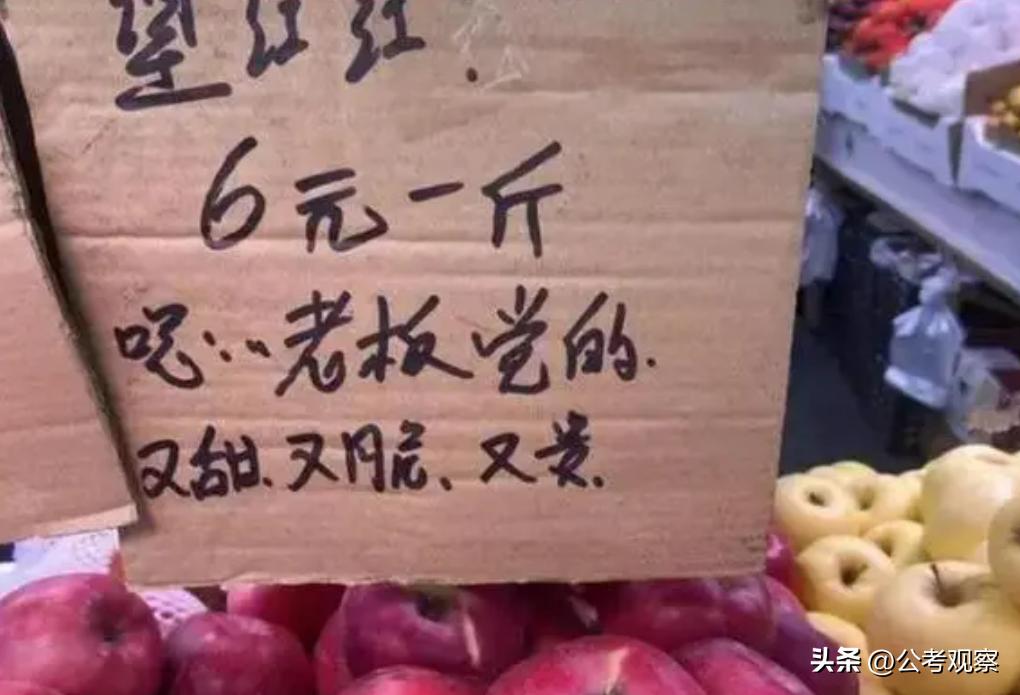 红红.
6元一斤
嗯...老板觉的.
又甜.又脆、又贵.
头条 @公考观察